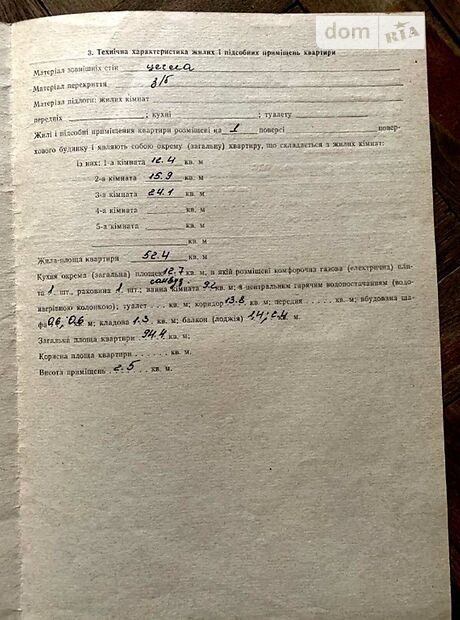 dom RIA
3. Технічна характеристика жилих і підсобних приміщень квартири
Матеріал зовнішніх стін цегла
Матеріал перекриття з/б
Матеріал підлоги: жилих кімнат
передніх ; кухні ; туалету
Жилі і підсобні приміщення квартири розміщені на 1 поверсі повер-
хового будинку і являють собою окрему (загальну) квартиру, що складається з жилих кімнат:
із них: 1-а кімната 12.4 кв. м
2-а кімната 15.9 кв. м
3-я кімната 24.1 кв. м
4-а кімната кв. м
5-а кімната кв. м
кв. м
Жила площа квартири 52.4 кв. м
Кухня окрема (загальна) площею 12.7 кв. м, в якій розміщені комфорочна газова (електрична) пли-
санвуз.
та 1 шт., раковина 1 шт.; ванна кімната кв. м з центральним гарячим водопостачанням (водо-
нагрівною колонкою); туалет . . . кв. м; коридор 13.8 кв. м; передня . . . . . . кв. м; вбудована ша-
фа 0.6, 0.6 м; кладова 1.3 кв. м; балкон (лоджія) 1.4; м.
Загальна площа квартири 94.4 кв. м;
Корисна площа квартири . . . . . . кв. м.
Висота приміщень 2.5 . . . . кв. м.